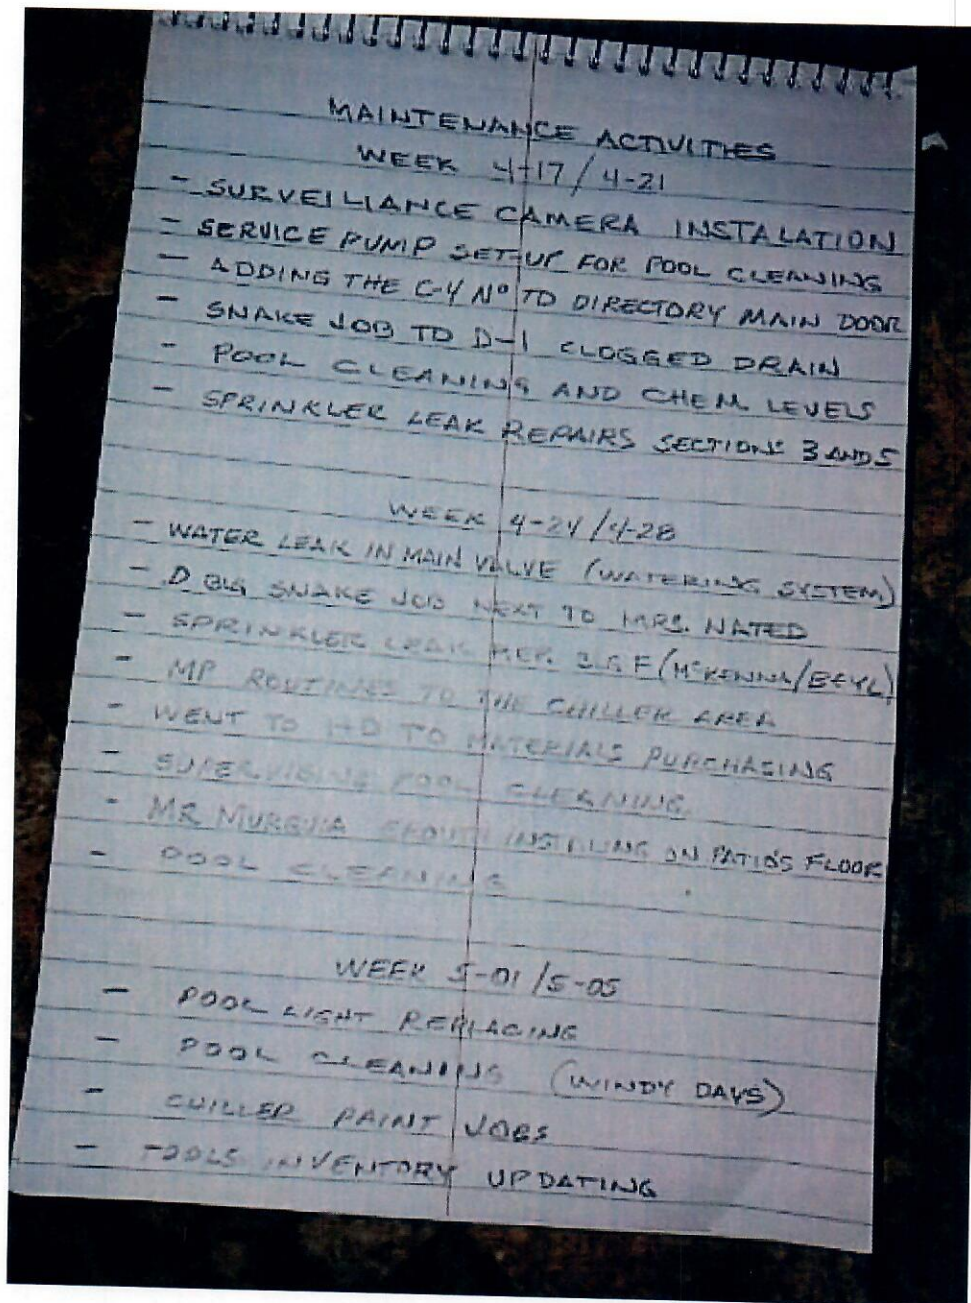 MAINTENANCE ACTIVITIES
WEEK 4-17/4-21
- SURVEILLANCE CAMERA INSTALATION
- SERVICE PUMP SET-UP FOR POOL CLEANING
- ADDING THE C-4 Nº TO DIRECTORY MAIN DOOR
- SNAKE JOB TO D-1 CLOGGED DRAIN
- POOL CLEANING AND CHEM. LEVELS
- SPRINKLER LEAK REPAIRS SECTIONS 3 AND 5
WEEK 4-24/4-28
- WATER LEAK IN MAIN VALVE (WATERING SYSTEM)
- D SNAKE JOB NEXT TO MRS. NATED
- SPRINKLER LEAK REP. F (McKENNA/
- MP ROUTINES TO THE CHILLER AREA
- WENT TO HD TO MATERIALS PURCHASING
- SUPERVISING POOL CLEANING
- MR MURGUIA INSTALING ON PATIO'S FLOOR
- POOL CLEANING
WEEK 5-01/5-05
- POOL LIGHT REPLACING
- POOL CLEANING (WINDY DAYS)
- CHILLER PAINT JOBS
- TOOLS INVENTORY UPDATING